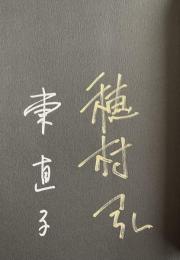 穂村弘
東直子